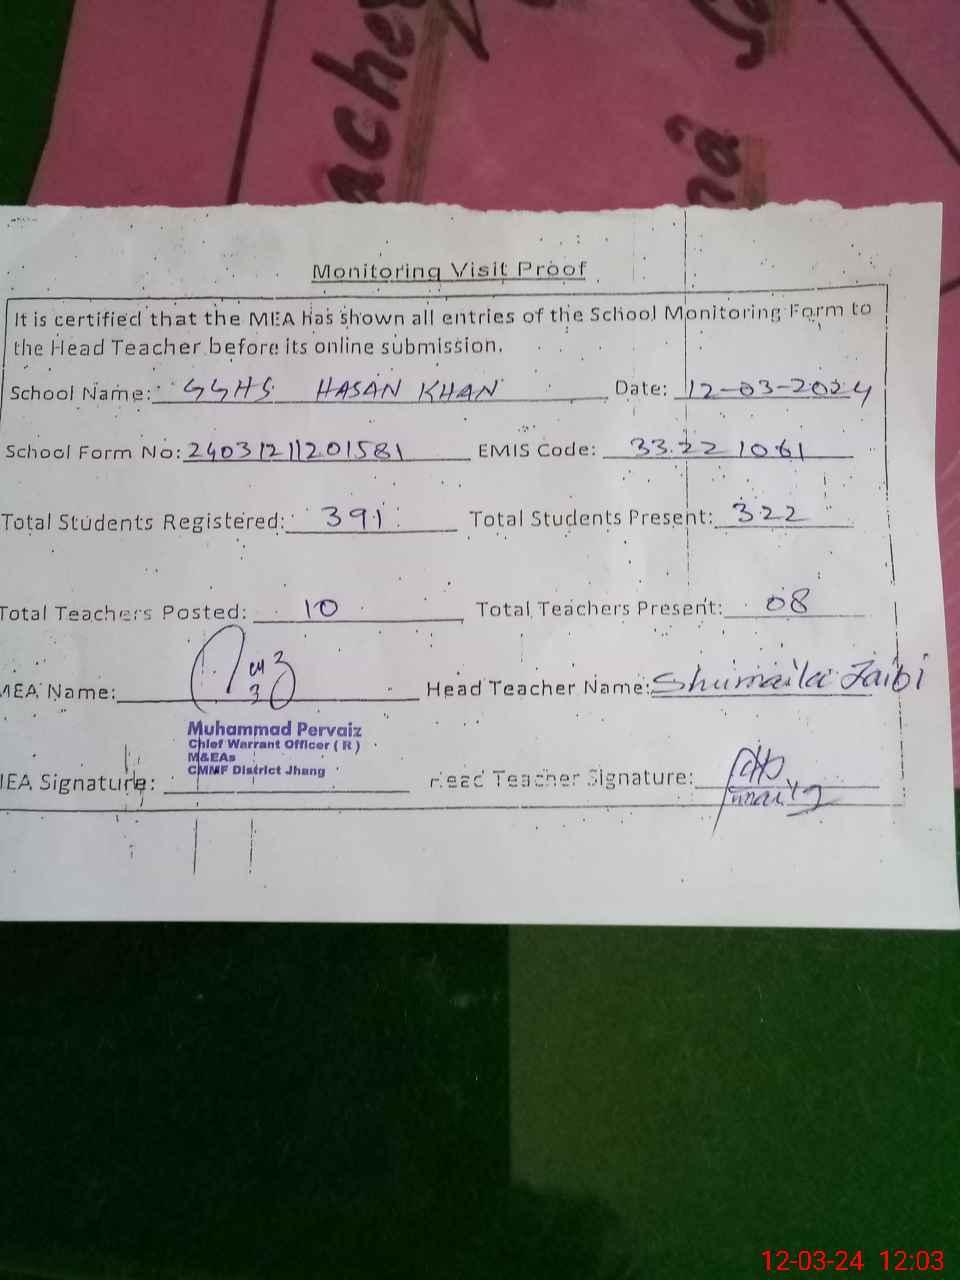 Monitoring Visit Proof
It is certified that the MEA has shown all entries of the School Monitoring Form to
the Head Teacher before its online submission.
School Name: GGHS HASAN KHAN Date: 12-03-2024
School Form No: 24031211201581 EMIS Code: 33221061
Total Students Registered: 391 Total Students Present: 322
Total Teachers Posted: 10 Total Teachers Present: 08
MEA Name: Head Teacher Name: Shumaila Zaibi
Muhammad Pervaiz
Chief Warrant Officer ( R )
M&EAs
CMMF District Jhang
MEA Signature: Head Teacher Signature:
12-03-24 12:03